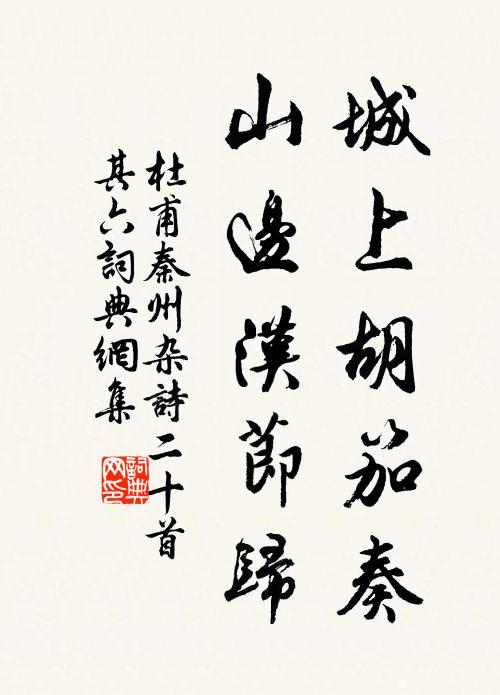 城上胡笳奏
山邊漢節歸
杜甫秦州杂詩二十首
其六詞典網集
詞典
网印